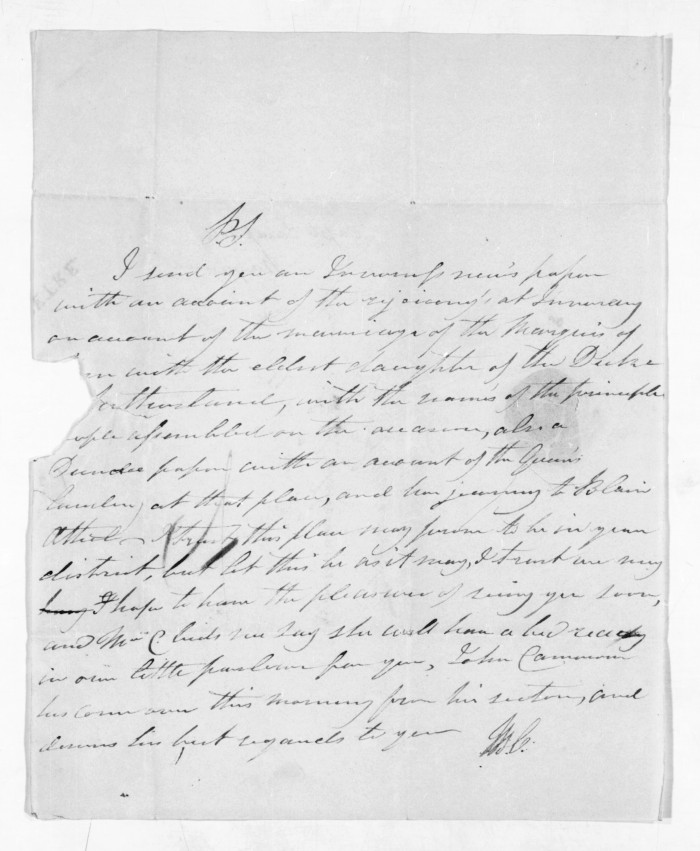 P.S.
I send you an Inverness news paper
with an account of the rejoicing's at Inverary
on account of the marriage of the Marquis of
rn with the eldest daughter of the Duke
Southerland, with the names of the principle
ople assembled on the occasion, also a
Dundee paper with an account of the Queens
landing at that place, and her journey to Blair
Athol. I trust this place may prove to be in your
district, but let this be as it may, I trust we may
I hope to have the pleasure of seing you soon,
and Mrs C. bids me say she will have a bed ready
in our little parlour for you, John Cameron
has come over this morning from his section, and
desires his best regards to you